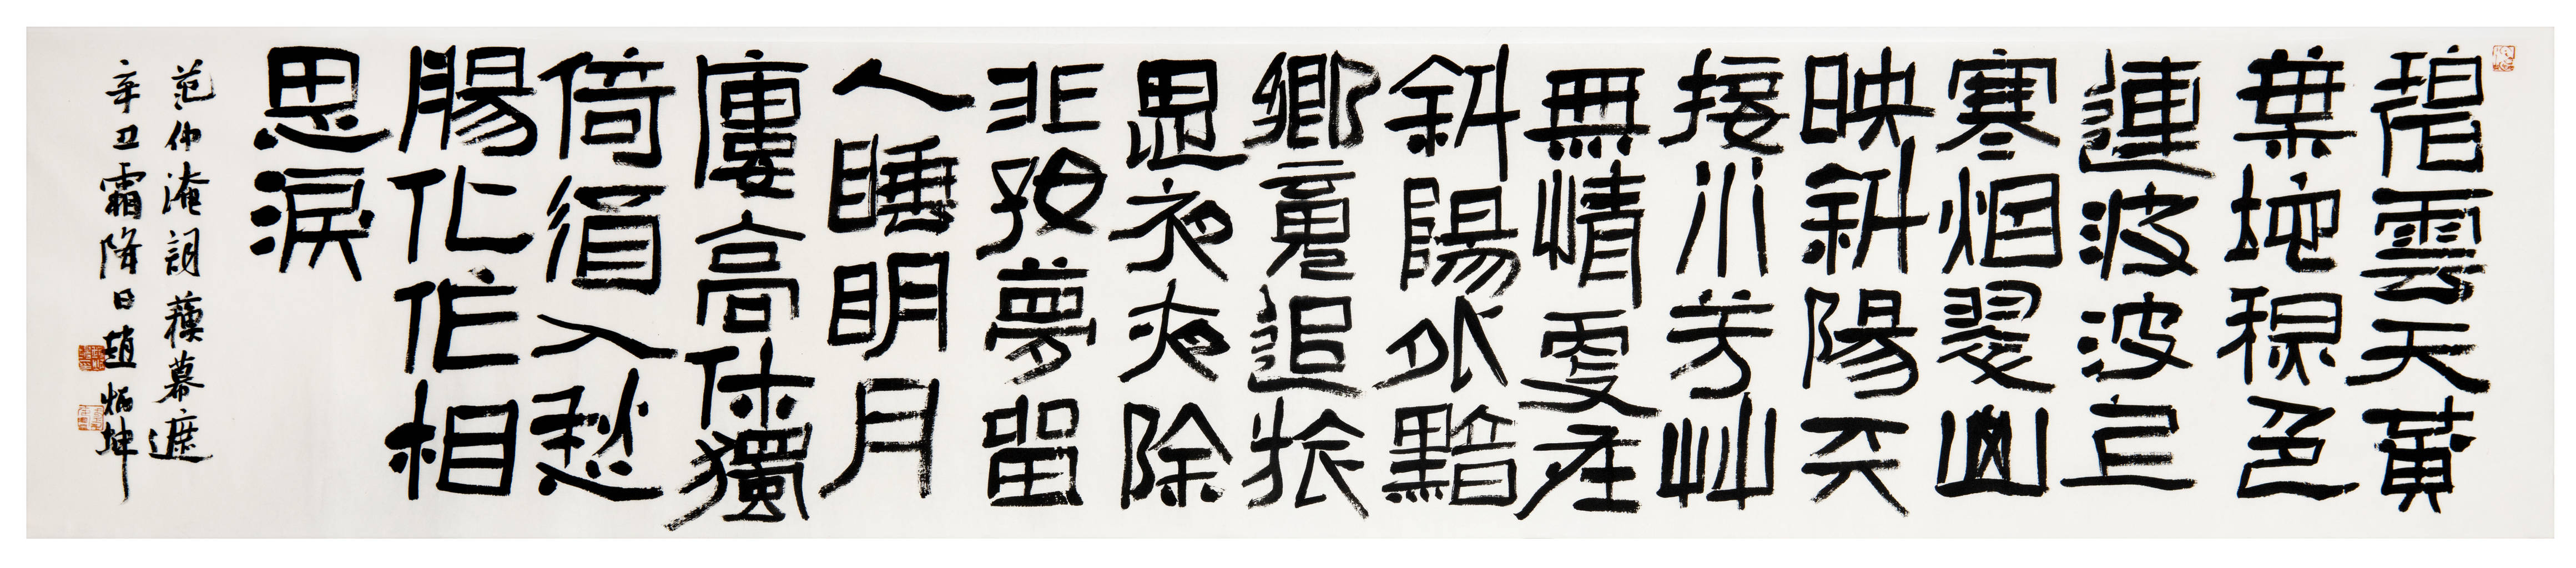 碧雲天黃
葉地秋色
連波波上
寒烟翠山
映斜陽天
接水芳艸
無情更在
斜陽外黯
鄉魂追旅
思夜夜除
非好夢留
人睡明月
廔高休獨
倚酒入愁
腸化作相
思淚
范仲淹詞蘇幕遮
辛丑霜降日趙炳坤